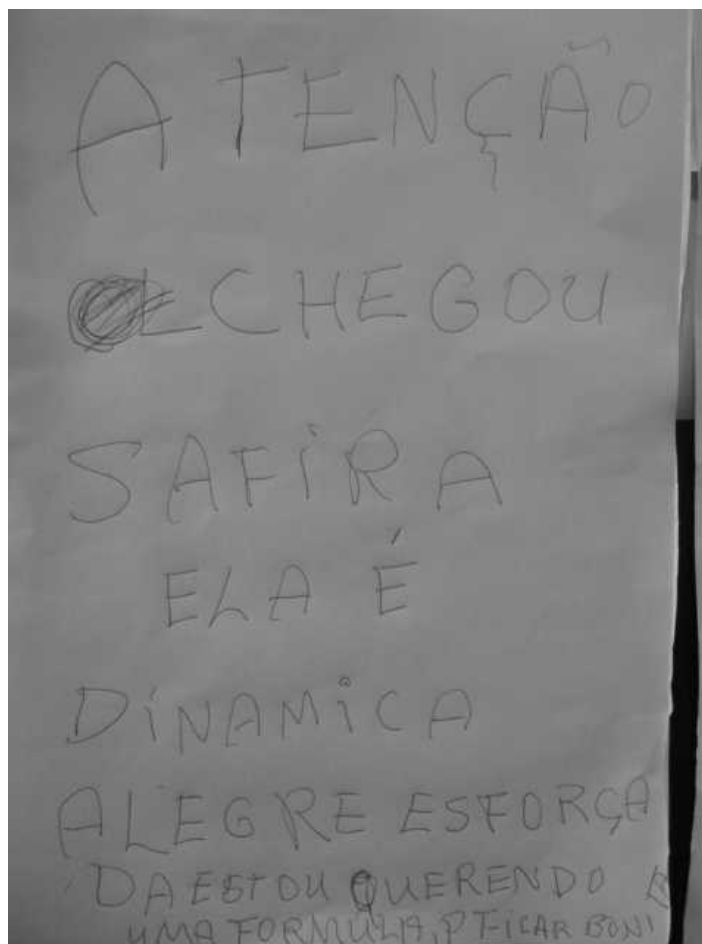 ATENÇÃO
CHEGOU
SAFIRA
ELA É
DINAMICA
ALEGRE ESFORÇA
DA ESTOU QUERENDO
UMA FORMULA, P FICAR BONI